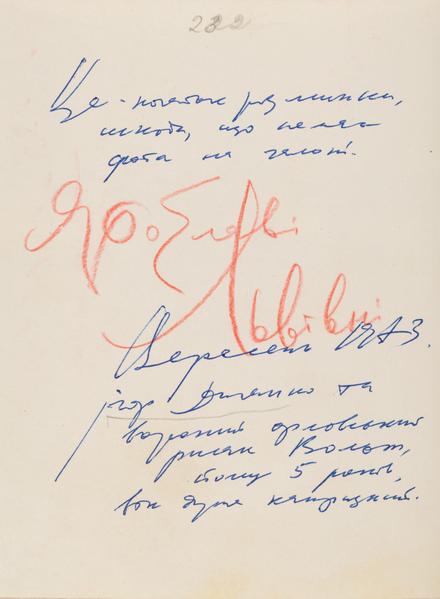 232
Це - початок розминки,
шкода, що нема
фота на галопі.
Ярославі
Львівні
Вересень 1973.
Ігор Диченко та
вороний орловський
рисак Вольт,
йому 5 років,
він дуже капризний.